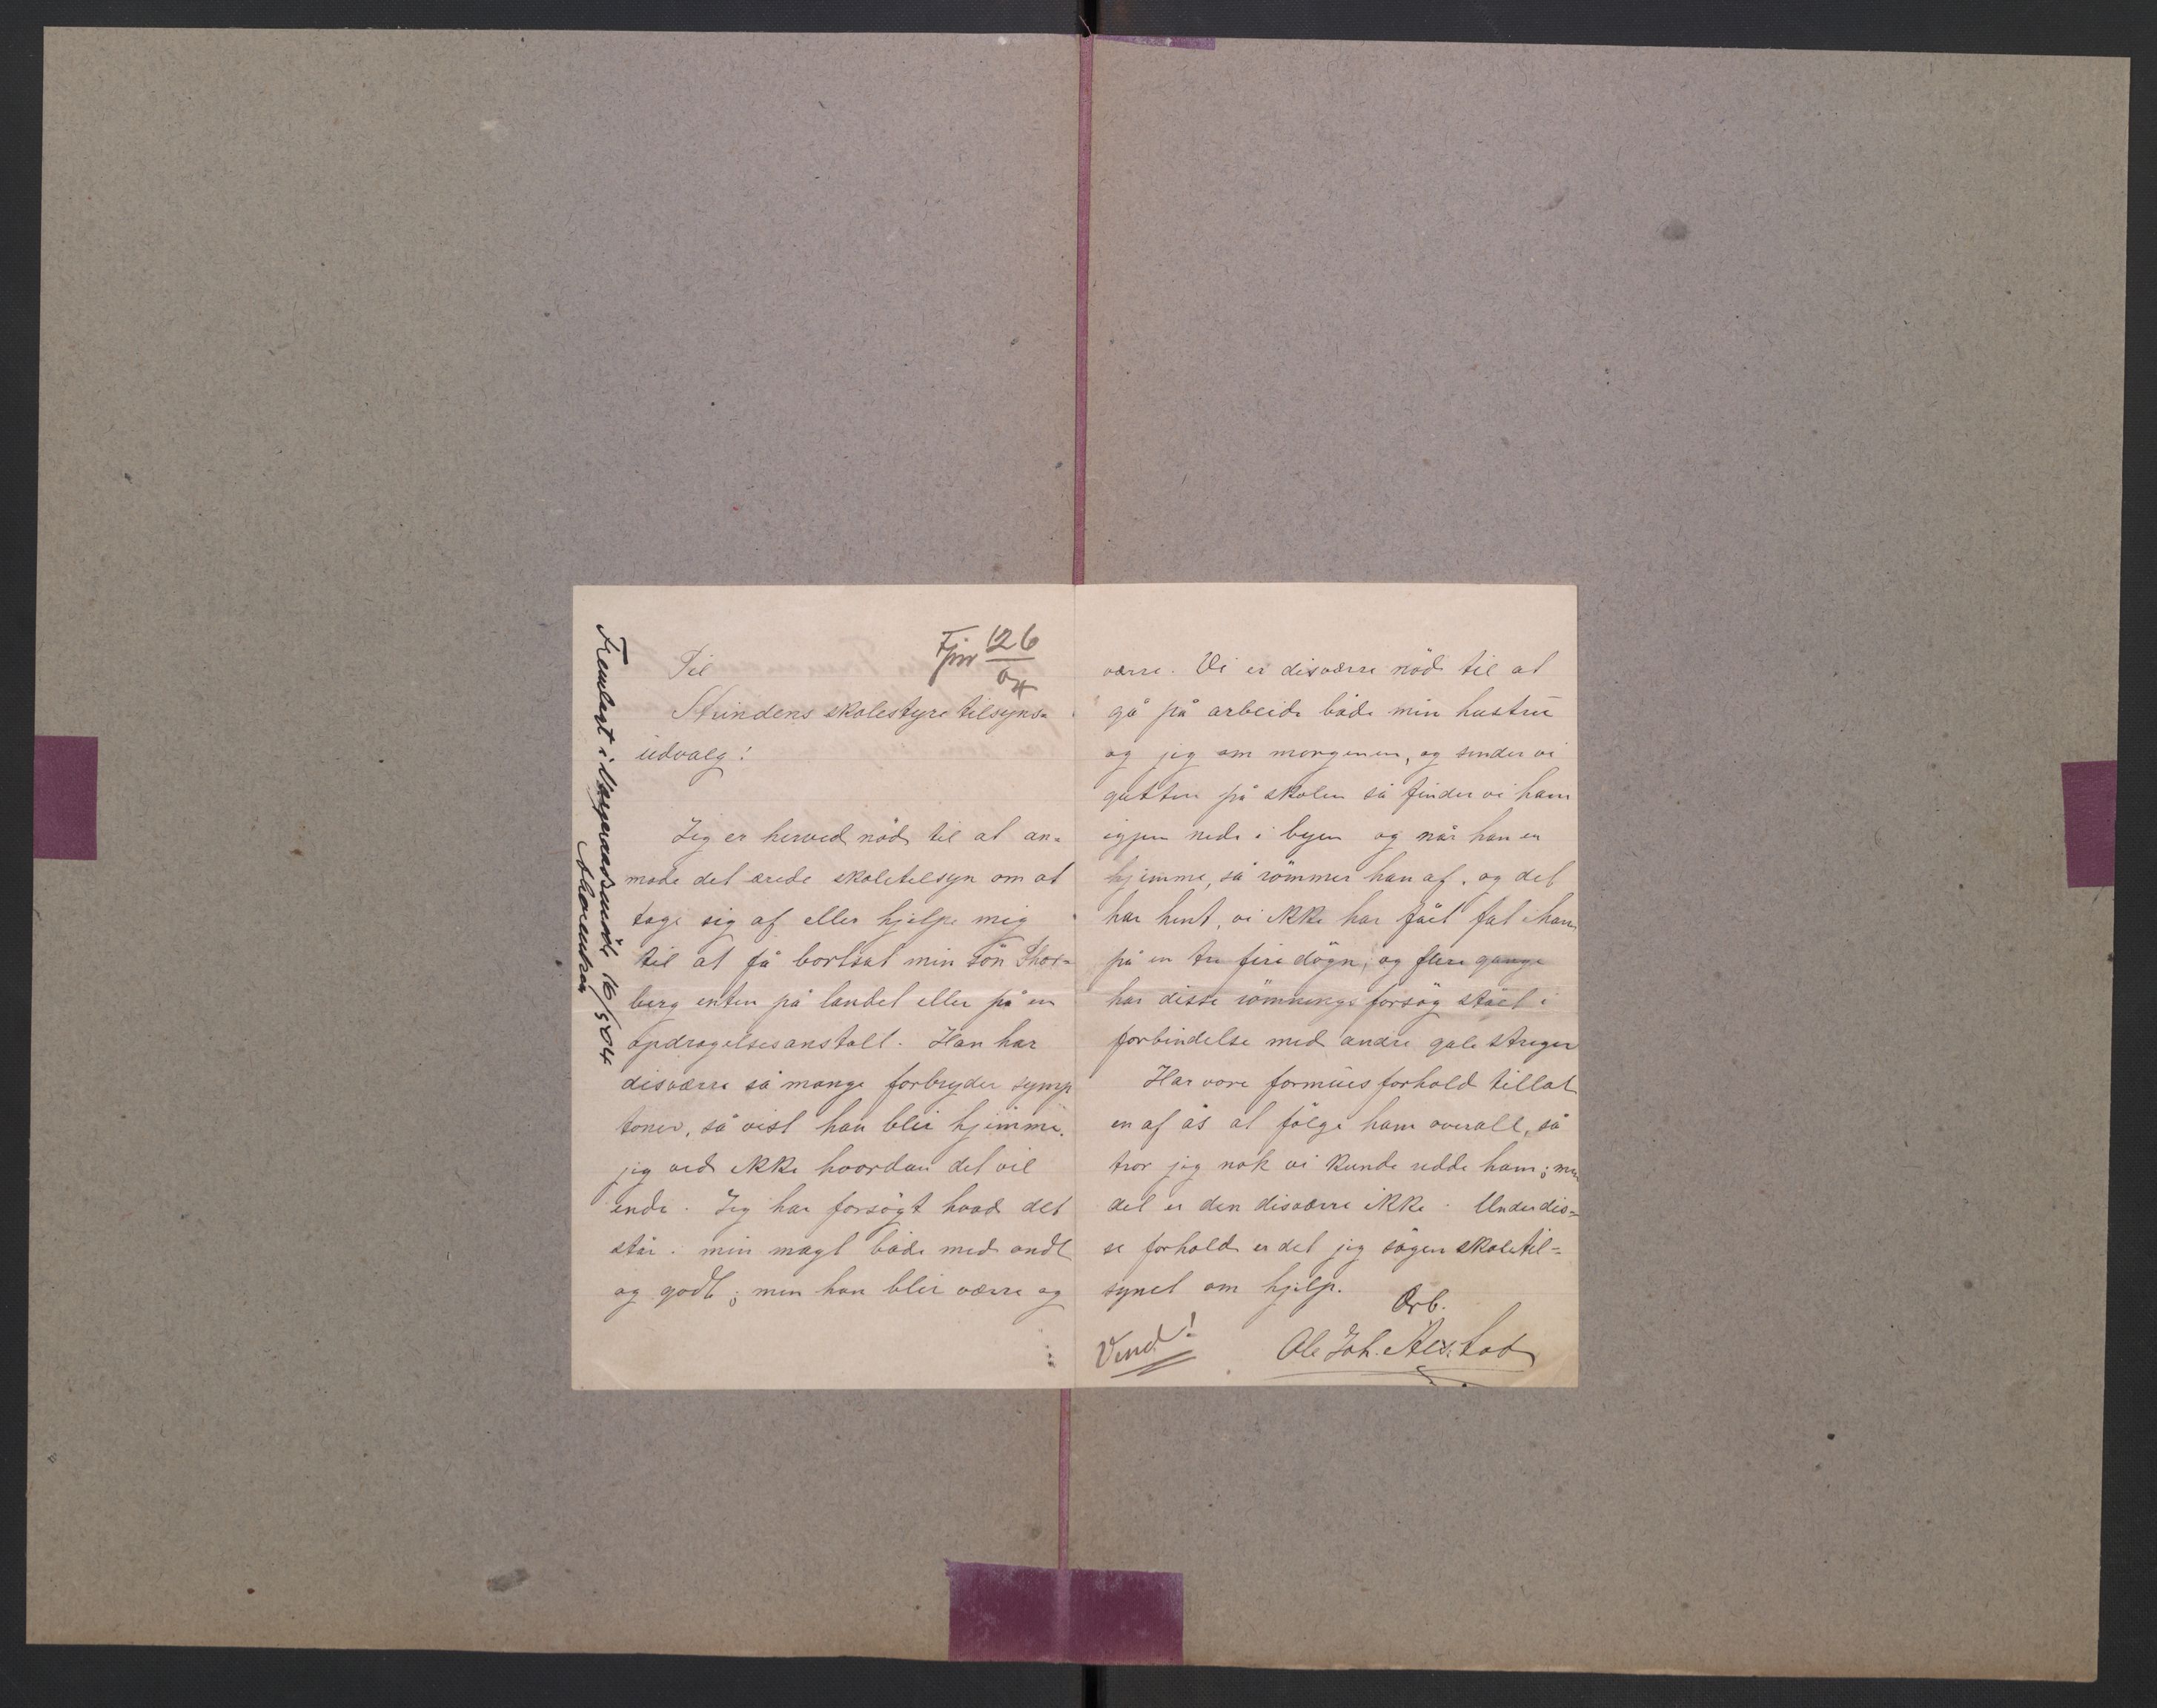 Fjnr 126
04
Til
Strindens skolestyre tilsyns-
udvalg!
Jeg er herved nød til at an-
mode det ærede skoletilsyn om at
tage sig af eller hjelpe mig
til at få bortsat min sön Thor-
berg enten på landet eller på en
opdragelsesanstalt. Han har
disværre så mange forbryder symp
toner, så vist han blir hjemme.
jeg ved ikke hvordan det vil
ende. Jeg har forsögt hvad det
står i min magt både med ondt
og godt; men han blir værre og
værre. Vi er disværre nöd til at
gå på arbeide både min hustru
og jeg om morgenen, og sender vi
gutten på skolen så finder vi ham
igjen nede i byen og når han er
hjemme, så römmer han af, og det
har hent, vi ikke har fået fat i ham
på en tre fire dögn; og flere gange
har disse römningsforsög stået i
forbindelse med andre gale streger
Har vore formues forhold tillat
en af ås at fölge ham overalt, så
tror jeg nok vi kunde redde ham; men
det er den disværre ikke. Under dis-
se forhold er det jeg söger skoletil-
synet om hjelp.
Ærb.
Ole Joh. Alstad
Vend!
Fremlagt i Vergeraadsmöde 16/5 04